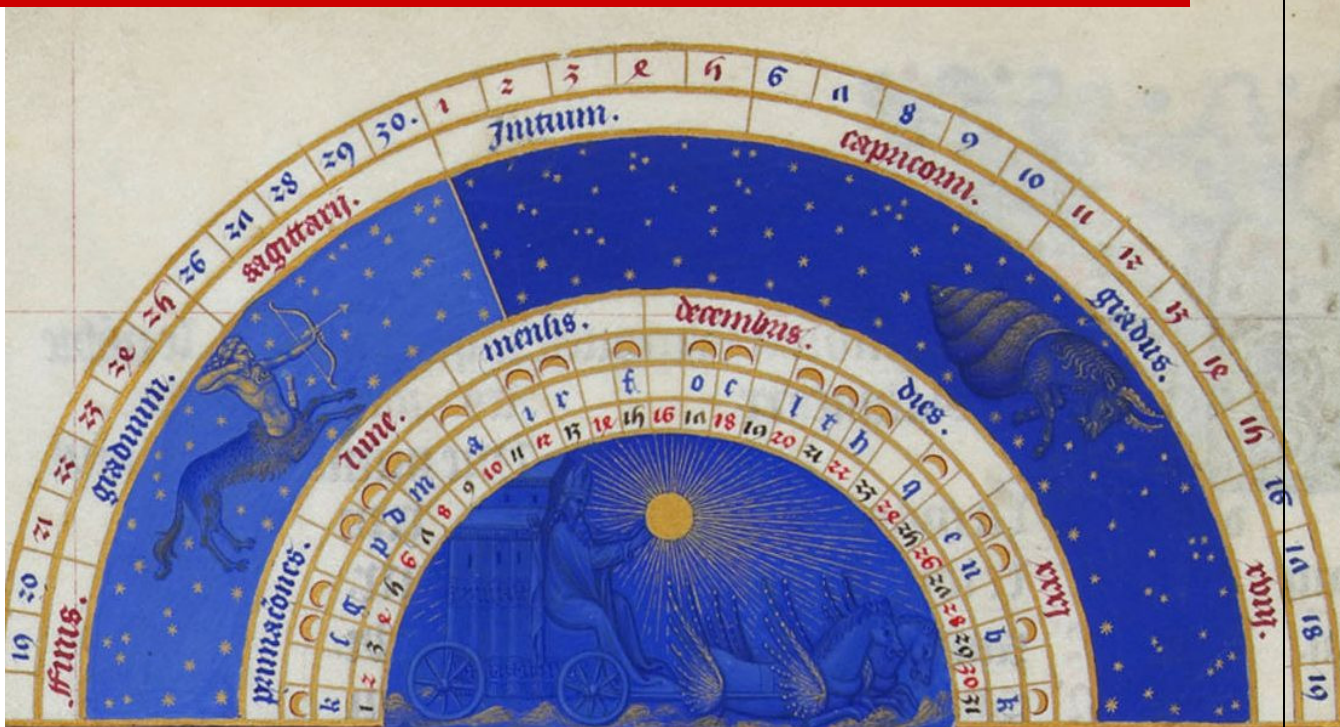 19 20 21 22 23 24 25 26 27 28 29 30. 1 2 3 4 5 6 7 8 9 10 11 12 13 14 15 16 17 18 19
ffinis. graduum. sagittarij. Initium. capricorni. gradus. xviij.
primaciones. lune. mensis. decembris. dies. xxxi
g p d m a i r o c l t h q e n b k
1 2 3 4 5 6 7 8 9 10 11 12 13 14 15 16 17 18 19 20 21 22 23 24 25 26 27 28 29 30 31